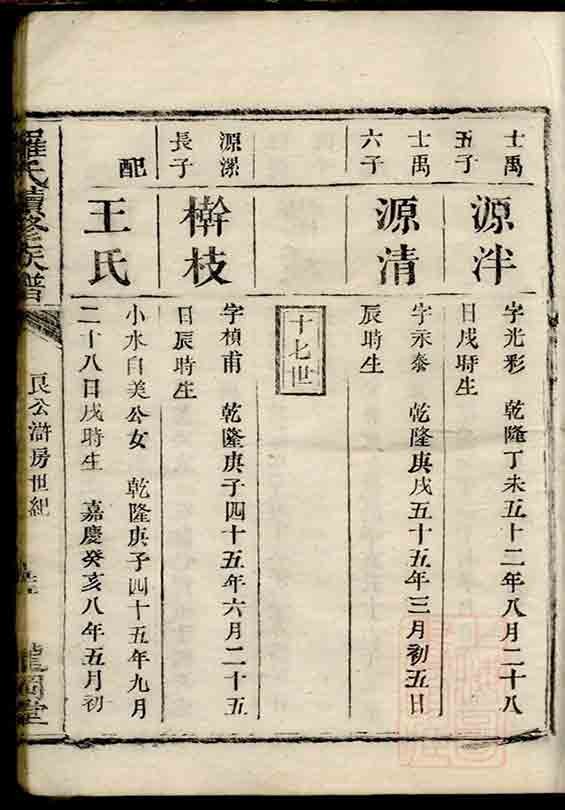 士禹
五子
源泮
字光彩 乾隆丁未五十二年八月二十八
日戌時生
士禹
六子
源清
字永泰 乾隆庚戌五十五年三月初五日
辰時生
十七世
源潔
長子
榦枝
字楨甫 乾隆庚子四十五年六月二十五
日辰時生
配
王氏
小水自美公女 乾隆庚子四十五年九月
二十八日戌時生 嘉慶癸亥八年五月初
羅氏續修族譜
良公滸房世紀
龍岡堂